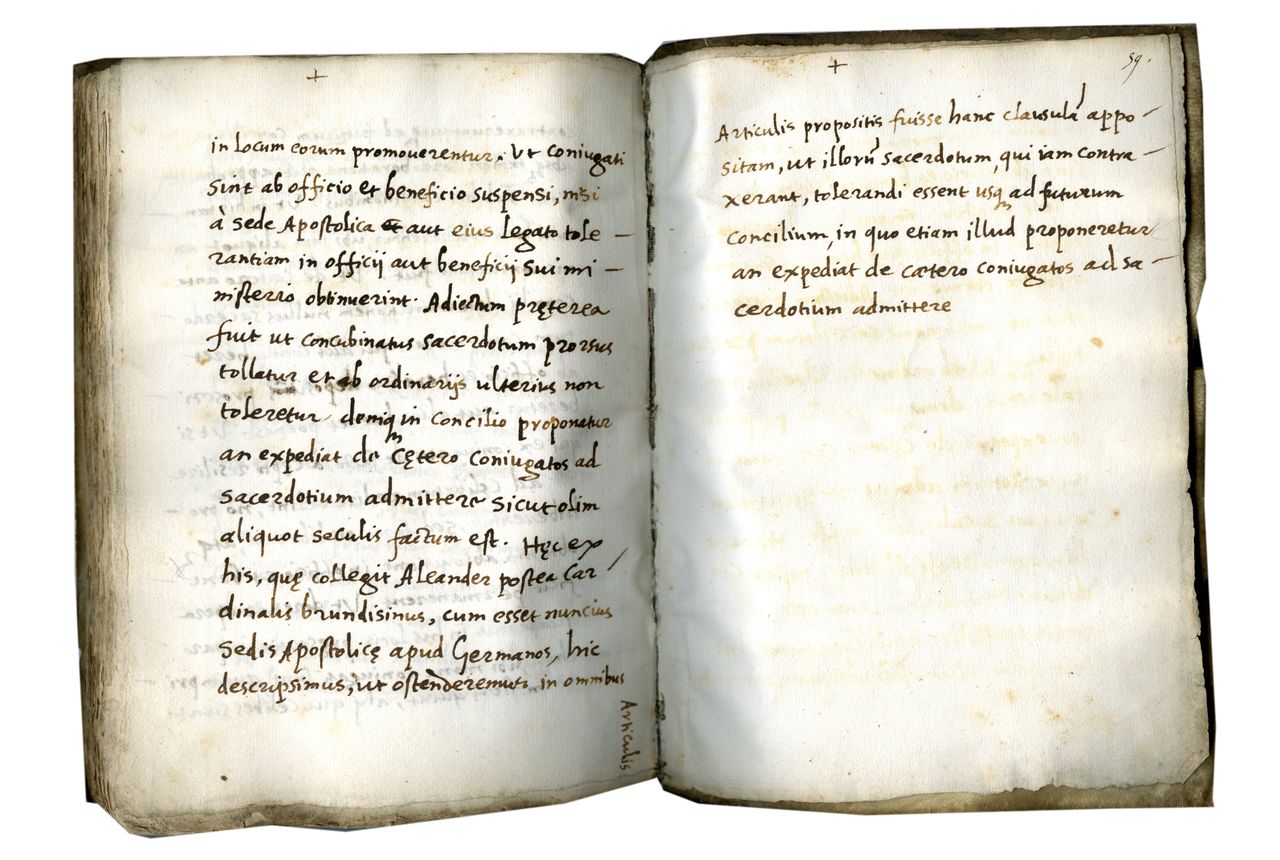 +
in locum eorum promouerentur. Vt Coniugati
sint ab officio et beneficio suspensi, nisi
à sede Apostolica aut eius legato tole –
rantiam in officij aut beneficij sui mi –
nisterio obtinuerint. Adiectum pręterea
fuit ut concubinatus sacerdotum prorsus
tollatur et ab ordinarijs ulterius non
toleretur demiq in Concilio proponatur
an expediat de Cętero Coniugatos ad
sacerdotium admittere sicut olim
aliquot seculis factum est. Hęc ex
his, quę collegit Aleander postea Car
dinalis brundisinus, cum esset nuncius
Sedis Apostolicę apud Germanos, hic
descripsimus, ut in omnibus
Articulis
+
59.
Articulis propositis fuisse hanc clausulā appo –
sitam, ut illorū sacerdotum, qui iam contra –
xerant, tolerandi essent usq ad futurum
Concilium, in quo etiam illud proponeretur
an expediat de cætero coniugatos ad sa –
cerdotium admittere